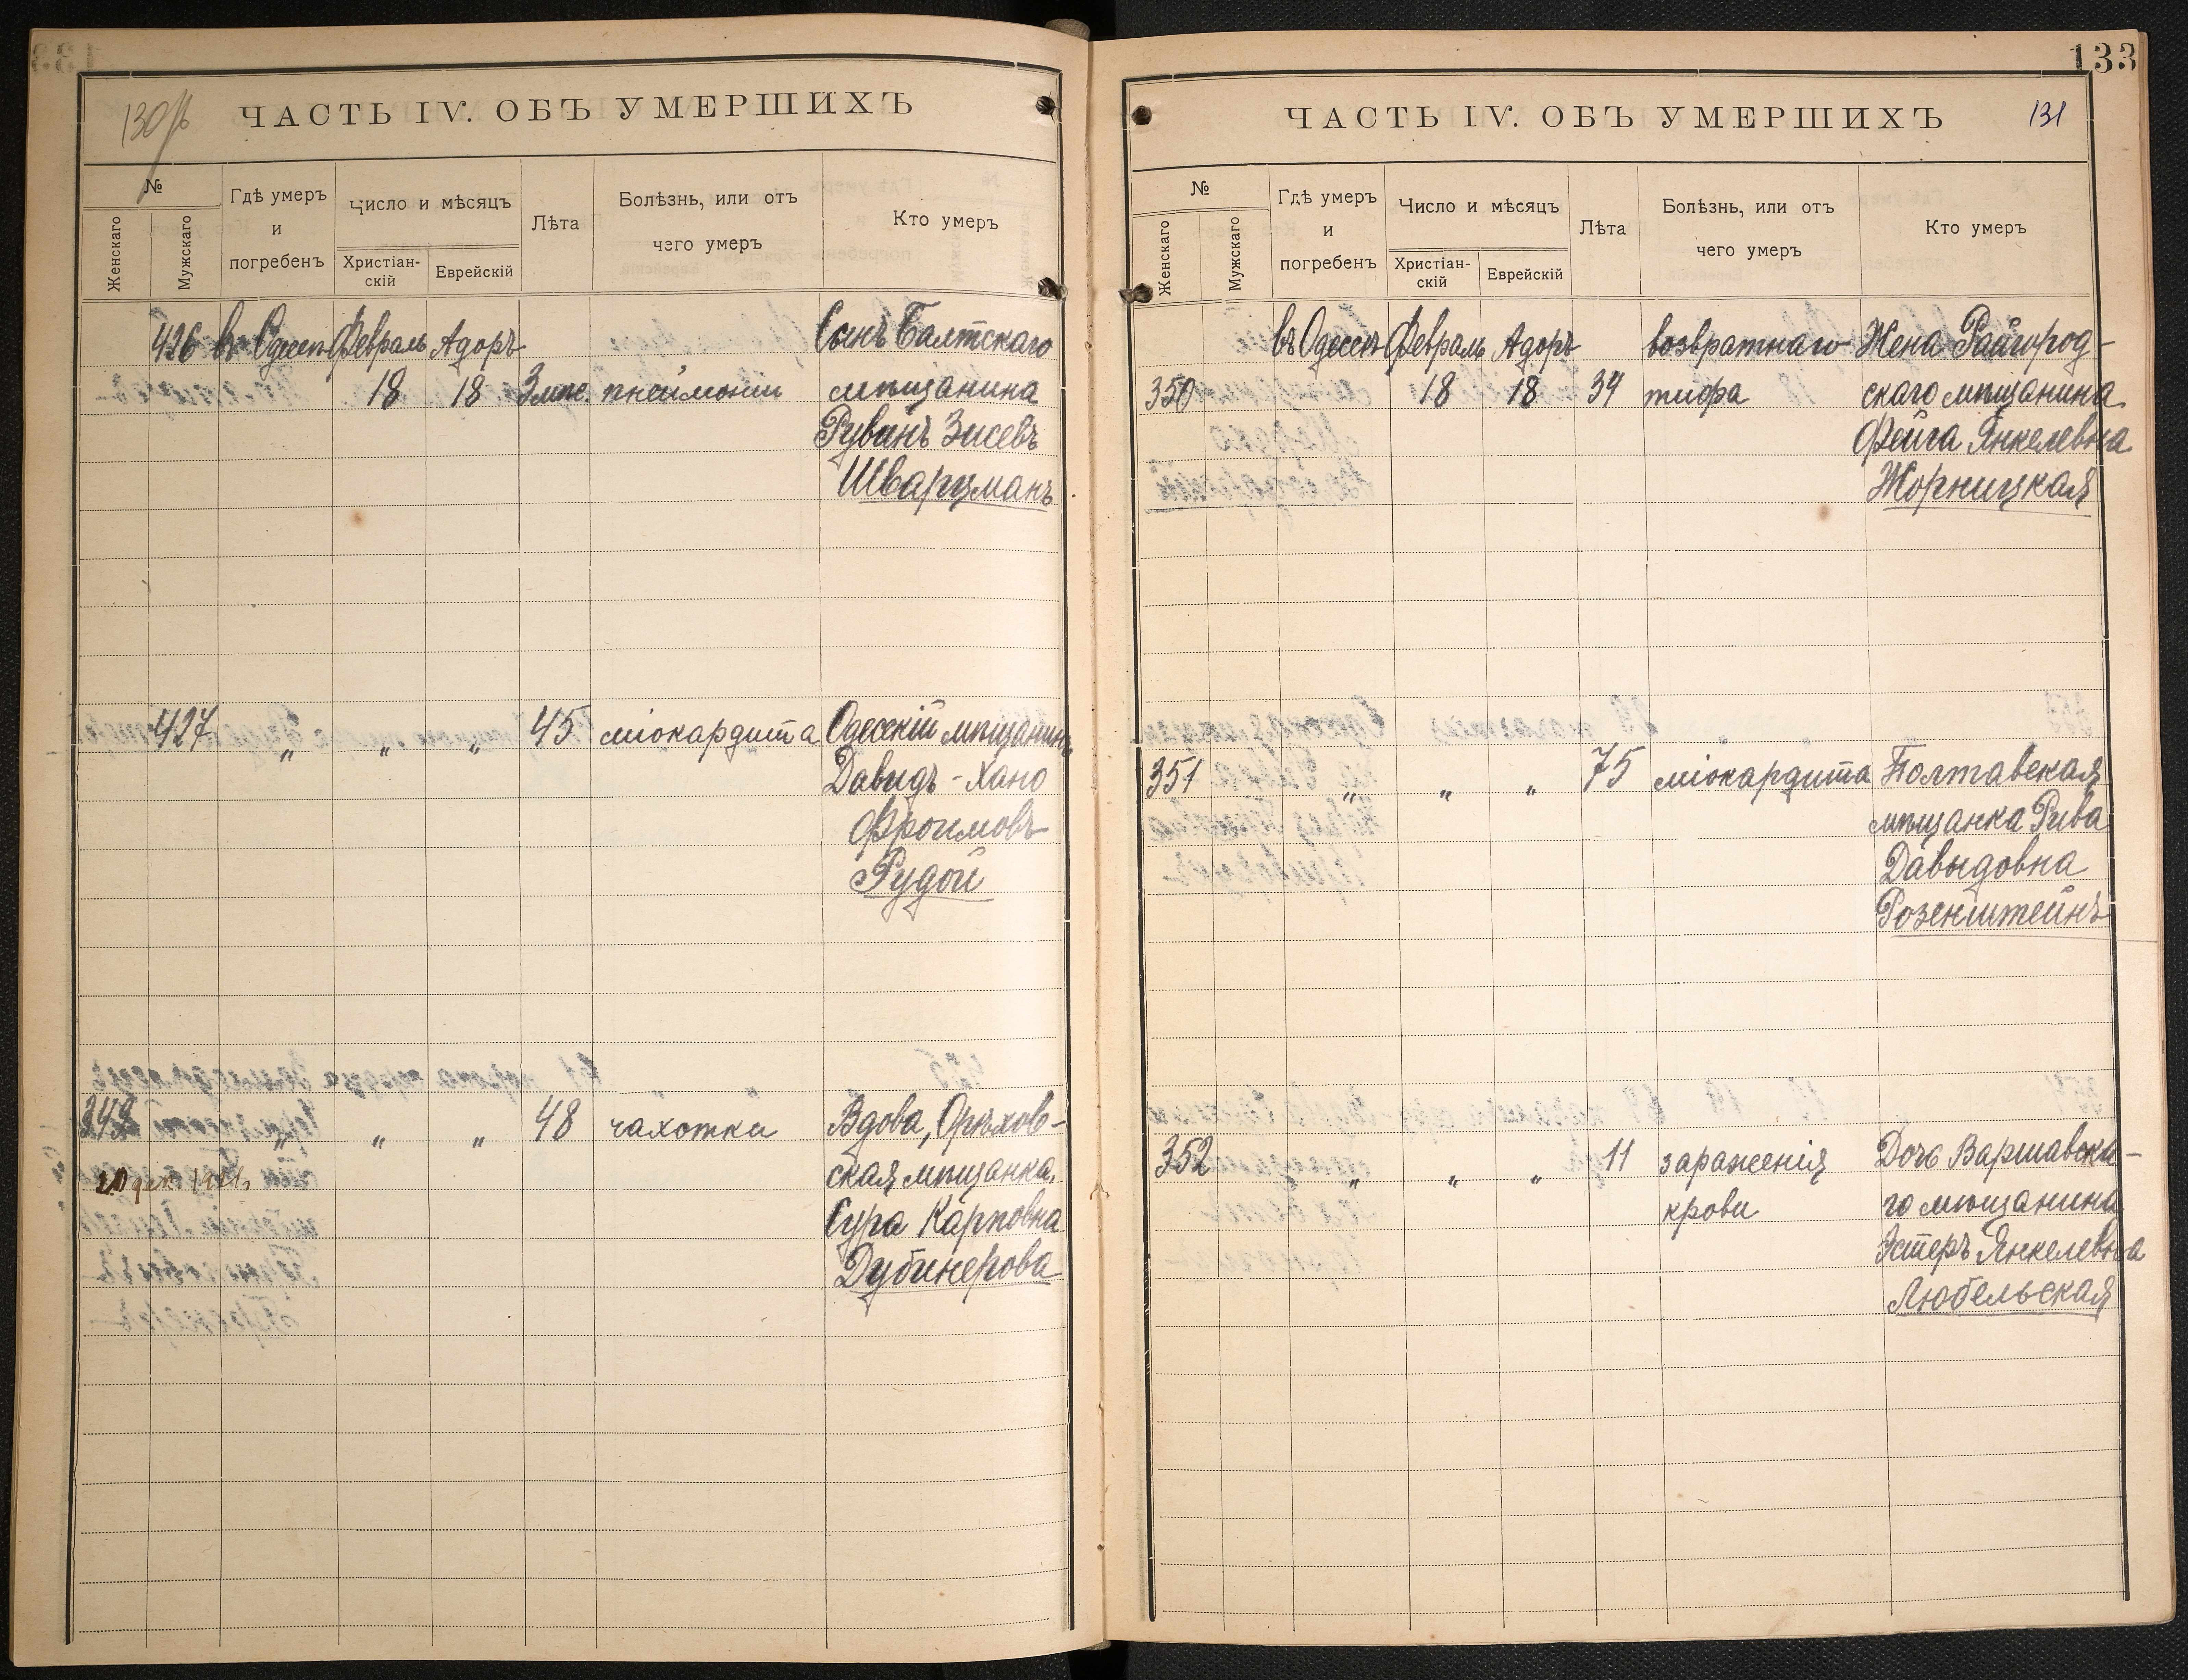 130
ЧАСТЬ IV. ОБЪ УМЕРШИХЪ
№
Женскаго
Мужскаго
Гдѣ умеръ
и
погребенъ
Число и мѣсяцъ
Христіан-
скій
Еврейскій
Лѣта
Болѣзнь, или отъ
чего умеръ
Кто умеръ
426 въ Одессѣ Февраль Адоръ Сынъ Балтскаго
18 18 3 мѣс. пнеймоніи мѣщанина
Рувинъ Зисевъ
Шварцманъ
427 „ „ „ 45 міокардита Одесскій мѣщанинъ
Давидъ-Хано
Фроимовъ
Рудой
349 „ „ „ 48 чахотки Вдова, Орѣхов-
ская мѣщанка,
Сура Карповна
Дубинерова
133
ЧАСТЬ IV. ОБЪ УМЕРШИХЪ
131
№
Женскаго
Мужскаго
Гдѣ умеръ
и
погребенъ
Число и мѣсяцъ
Христіан-
скій
Еврейскій
Лѣта
Болѣзнь, или отъ
чего умеръ
Кто умеръ
въ Одессѣ Февраль Адоръ возвратнаго Жена Райгород-
350 18 18 34 тифа скаго мѣщанина
Фейга Янкелевна
Жорницкая
351 „ „ „ 75 міокардита Полтавская
мѣщанка Рива
Давыдовна
Розенштейнъ
352 „ „ „ 11 зараженія Дочь Варшавска-
крови го мѣщанина
Эстеръ Янкелевна
Любельская